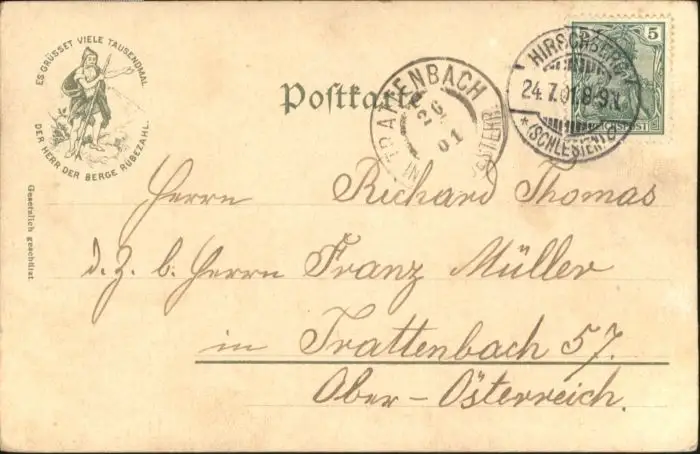 ES GRÜSSET VIELE TAUSENDMAL
DER HERR DER BERGE RÜBEZAHL.
Gesetzlich geschützt
Postkarte
TRATTENBACH
26
01
5
HIRSCHBERG
24.7.01.8-9V.
*(SCHLESIEN)
REICHSPOST
Herrn Richard Thomas
d. Z. b. Herrn Franz Müller
in Trattenbach 57.
Ober-Österreich.